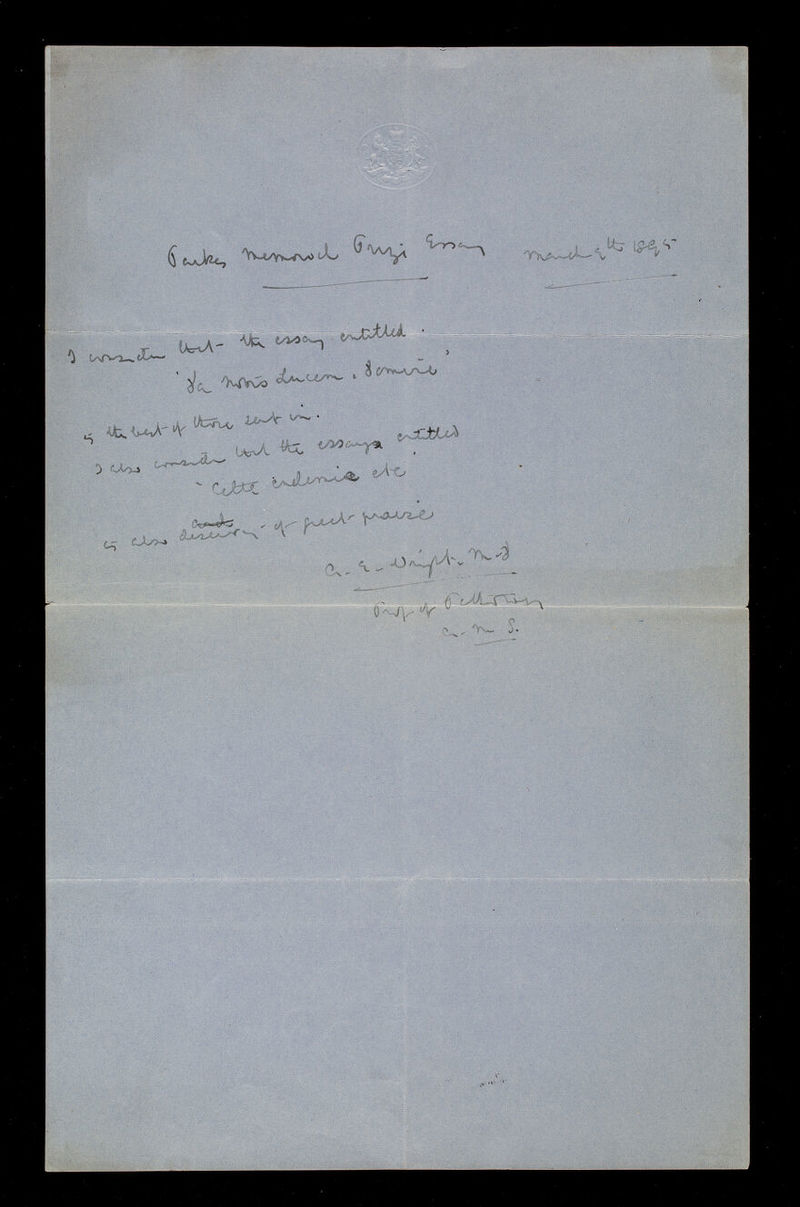 Parkes Memorial Prize Essay March 9th 1895
I consider that the essay entitled
'Da Nobis Lucem, Domine'
is the best of those sent in.
I also consider that the essay entitled
" etc"
is also deserving of great praise
A. E. Wright. M.D
Prof of Pathology
A. M S.